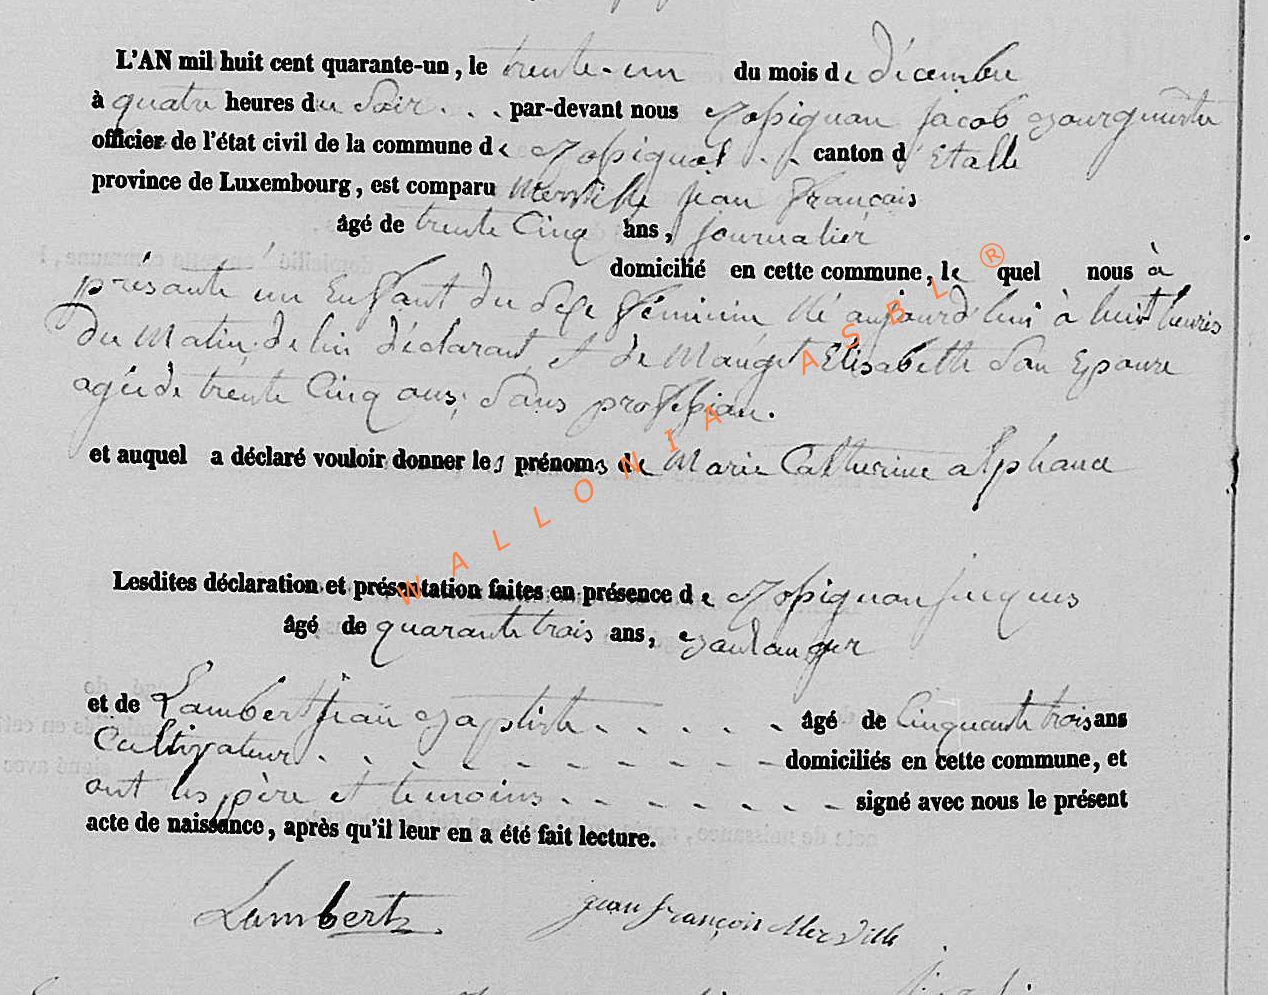 L'AN mil huit cent quarante-un, le trente-un du mois de décembre
à quatre heures du Soir . . . par-devant nous Rossignon Jacob Bourgmestre
officier de l'état civil de la commune de Rossignol . . canton d'Etalle
province de Luxembourg, est comparu Merville Jean François
âgé de trente Cinq ans, journalier
domicilié en cette commune, lequel nous à
présenté un Enfant du Sexe féminin Né aujourd'hui à huit heures
du Matin, de lui déclarant et de Mauget Elisabeth Son Epouse
agée de trente Cinq ans, Sans profession.
et auquel a déclaré vouloir donner les prénoms de Marie Catherine alphance
WALLONIA ASBL ®
Lesdites déclaration et présentation faites en présence de Rossignon Jacques
âgé de quarante trois ans, Boulanger
et de Lambert Jean Baptiste . . . . . âgé de Cinquante trois ans
Cultivateur . . . . . . . . . . domiciliés en cette commune, et
ont les père et temoins . . . . . . . signé avec nous le présent
acte de naissance, après qu'il leur en a été fait lecture.
Lambert
jean françois Merville